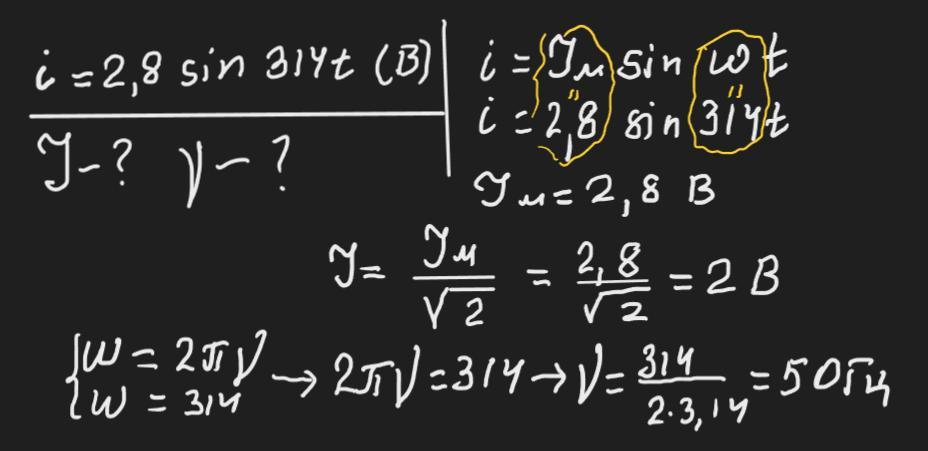 i = 2,8 sin 314t (В)
I - ? ν - ?
i = Iм sin ωt
i = 2,8 sin 314t
Iм = 2,8 В
I = Iм/√2 = 2,8/√2 = 2 В
{ω = 2πν
{ω = 314
→ 2πν = 314 → ν = 314/2·3,14 = 50Гц